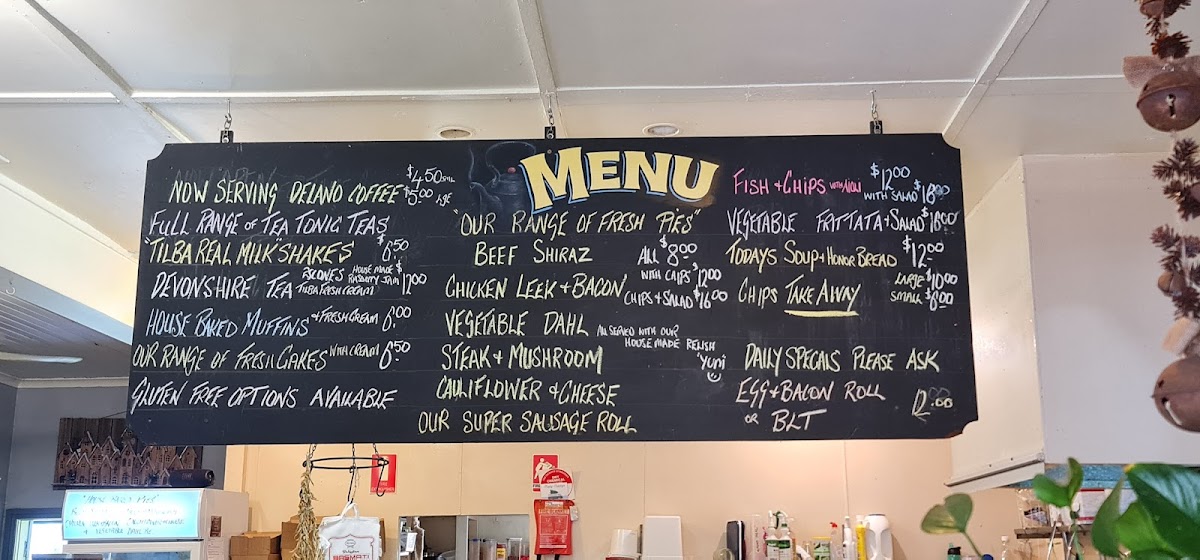 MENU
NOW SERVING DELANO COFFEE $4.50 $5.00 LGE
FULL RANGE OF TEA TONIC TEAS
"TILBA REAL MILK" SHAKES $6.50
DEVONSHIRE TEA SCONES HOUSE MADE RASBERRY JAM TILBA FRESH CREAM $12.00
HOUSE BAKED MUFFINS + FRESH CREAM 6.00
OUR RANGE OF FRESH CAKES WITH CREAM 6.50
GLUTEN FREE OPTIONS AVAILABLE
"OUR RANGE OF FRESH PIES"
BEEF SHIRAZ ALL $8.00
WITH CHIPS $12.00
CHICKEN LEEK + BACON CHIPS + SALAD $16.00
VEGETABLE DAHL ALL SERVED WITH OUR HOUSE MADE RELISH
STEAK + MUSHROOM 'yum'
CAULIFLOWER + CHEESE
OUR SUPER SAUSAGE ROLL
FISH + CHIPS $12.00
WITH SALAD $18.00
VEGETABLE FRITTATA + SALAD $18.00
TODAYS SOUP + HONOR BREAD $12.00
CHIPS TAKE AWAY LARGE $10.00
SMALL $6.00
DAILY SPECIALS PLEASE ASK
EGG + BACON ROLL 12.00
OR BLT
BASMATI